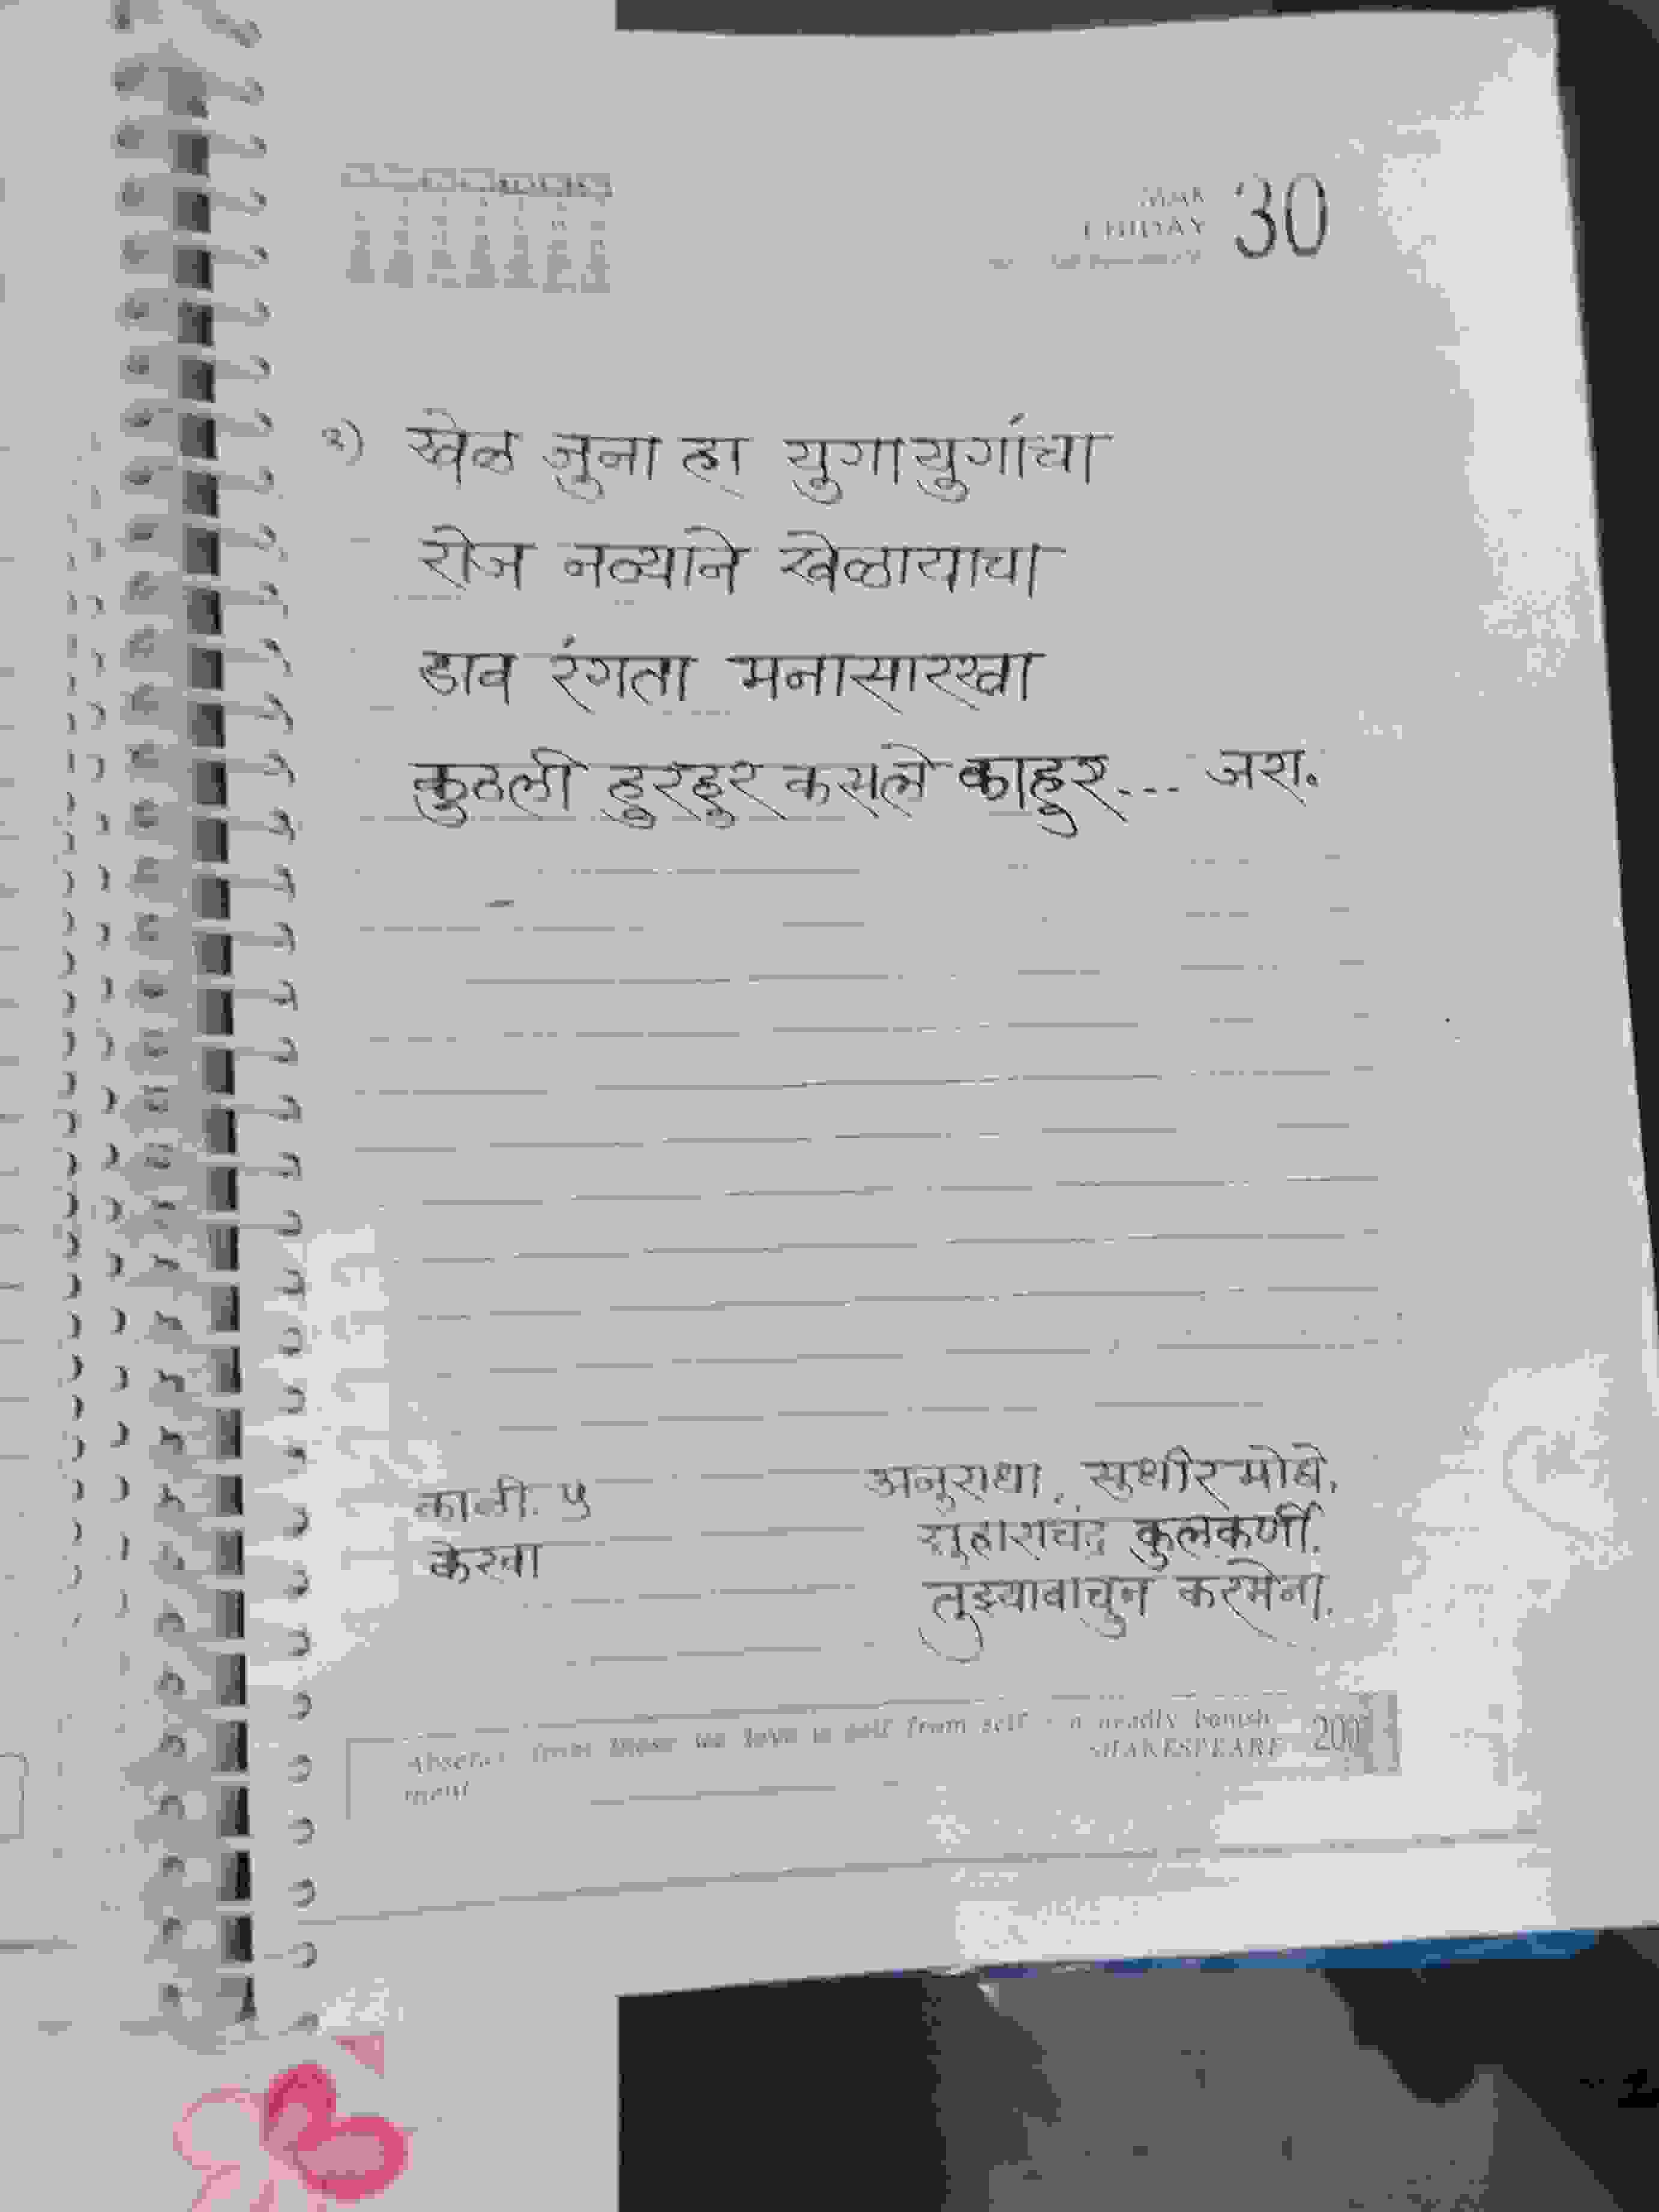 MAR
FRIDAY 30
२) खेळ जुना हा युगायुगांचा
रोज नव्याने खेळायाचा
डाव रंगता मनासारखा
कुठली हुरहुर कसले काहुर... जरा.
काळी ५
केरवा
अनुराधा, सुधीर मोघे.
सुहासचंद्र कुलकर्णी.
तुझ्यावाचुन करमेना.
from those we love is self from self - a deadly banish
ment
SHAKESPEARE
200